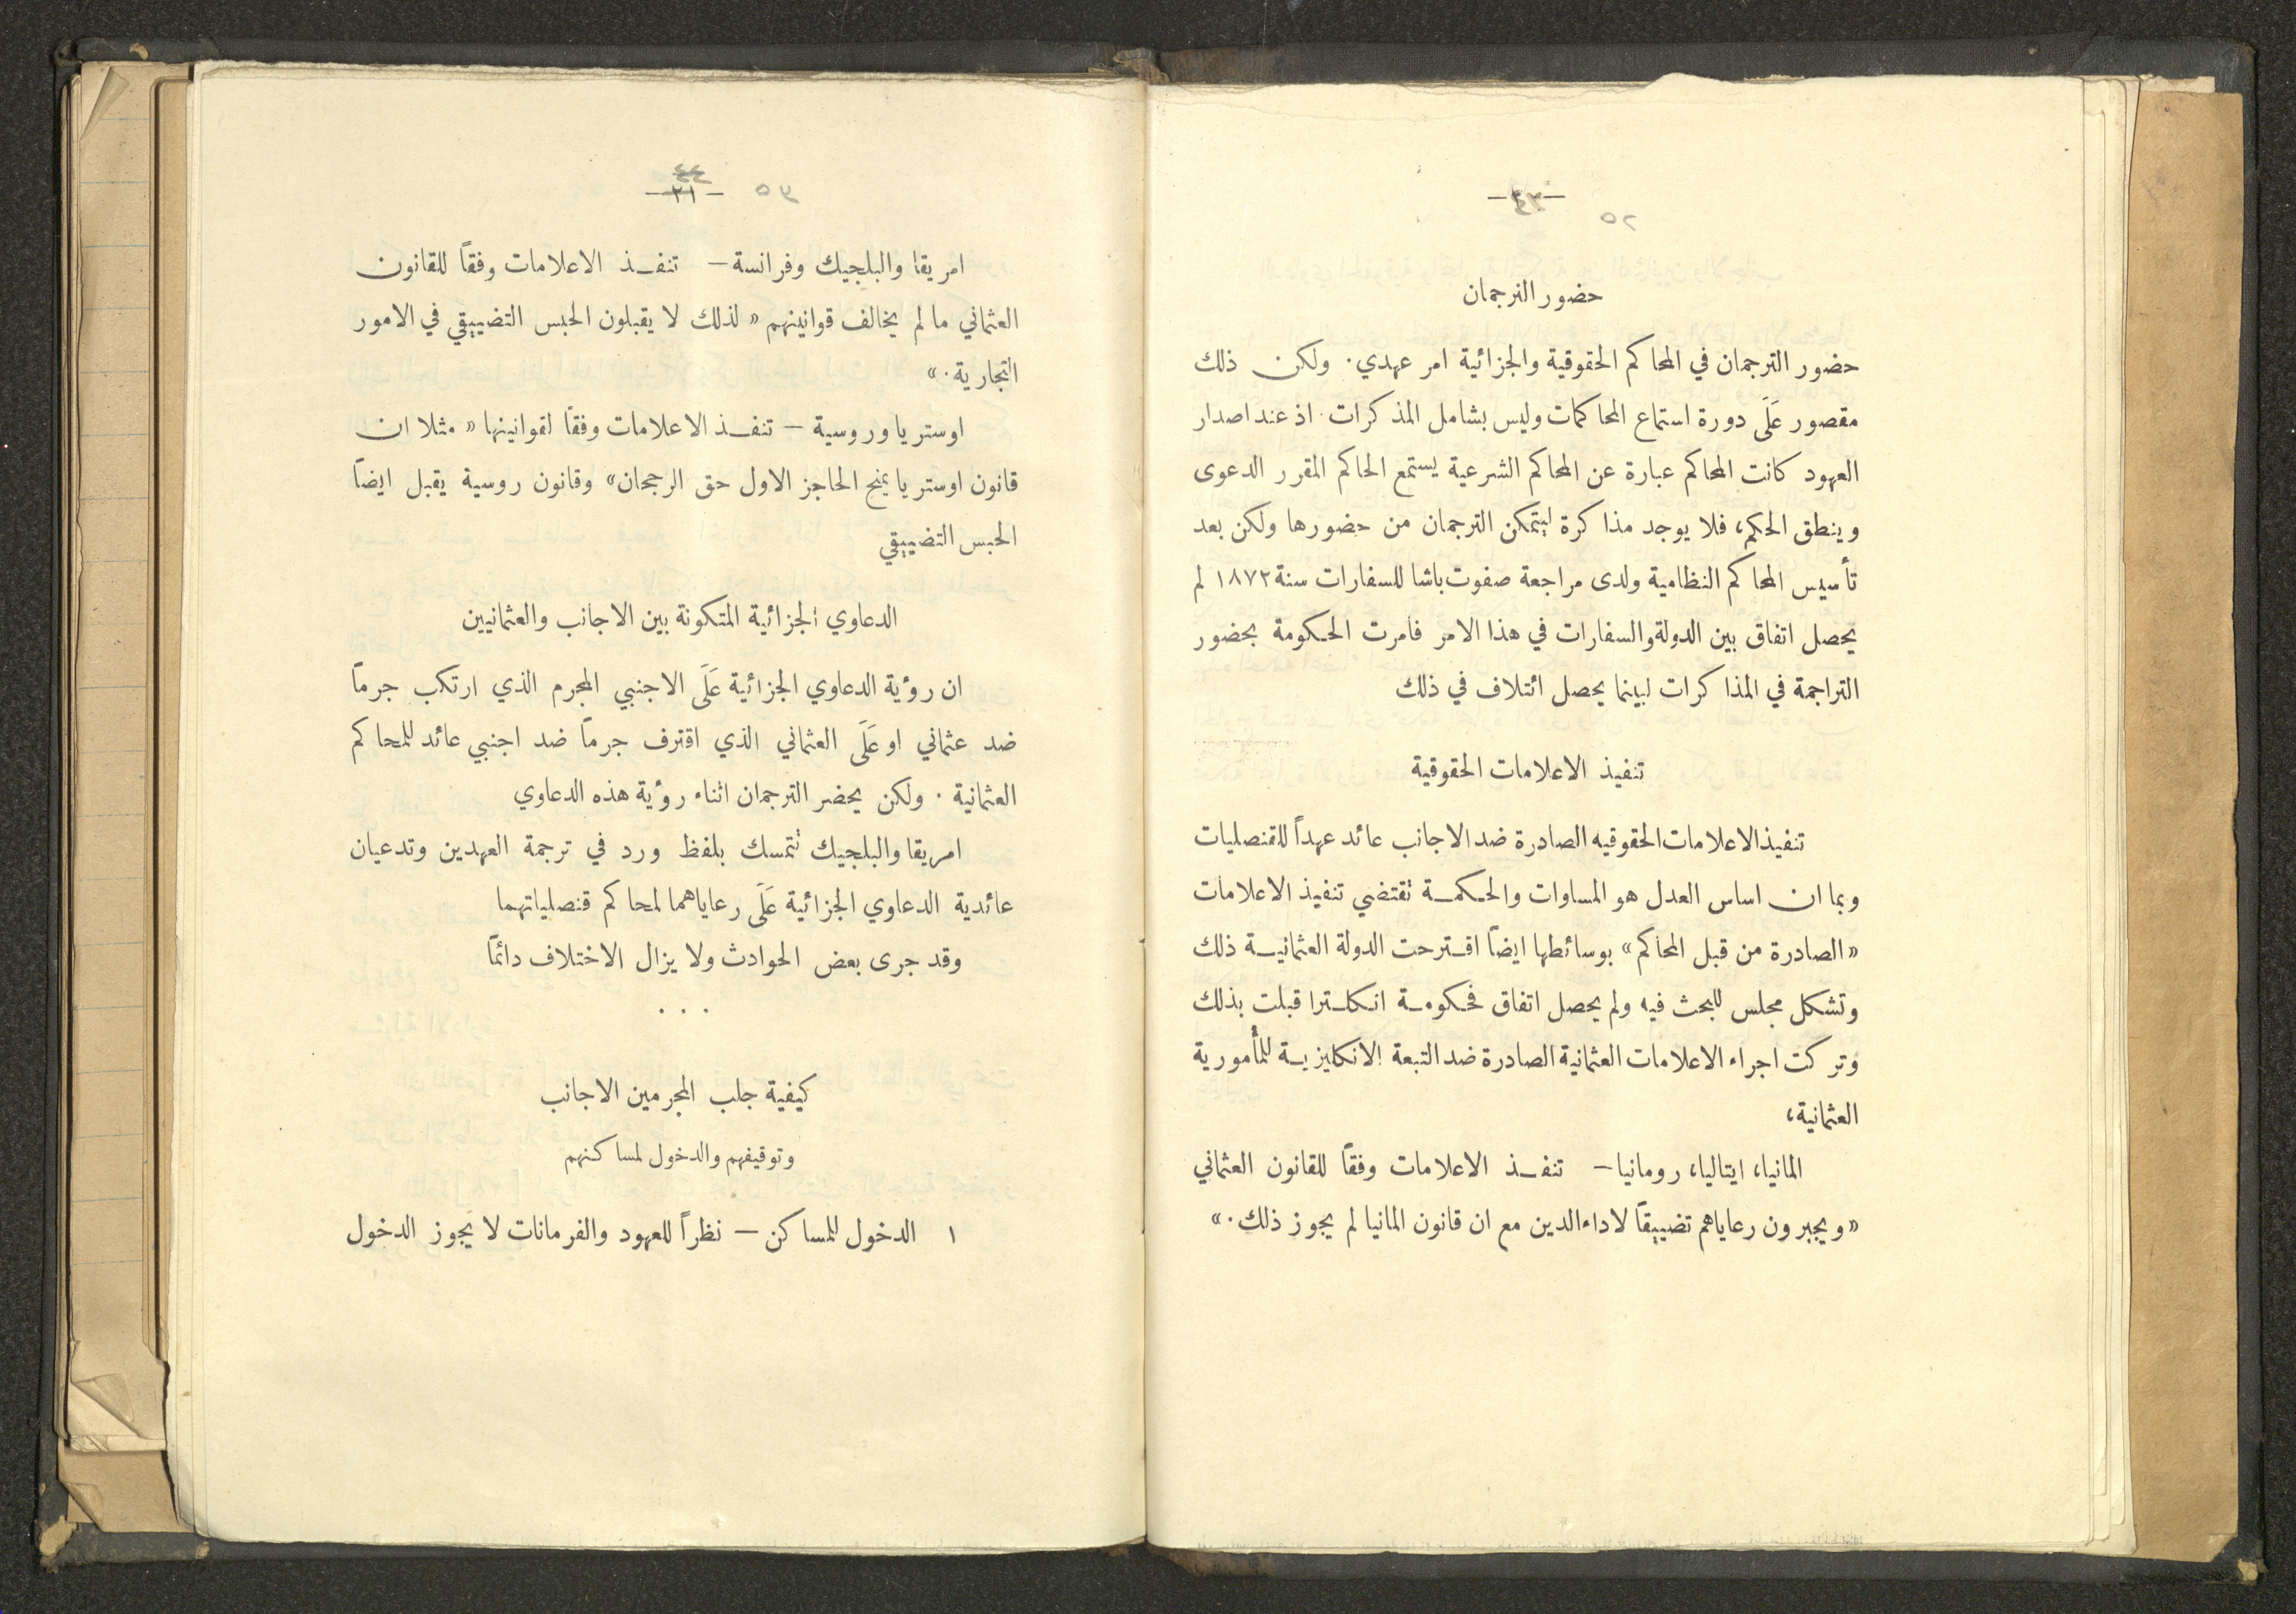 حضور الترجمان
حضور الترجمان في المحاكم الحقوقية والجزائية امر عهدي. ولكن ذلك
مقصور عَلَى دورة استماع المحاكمات وليس بشامل المذكرات. اذ عند اصدار
العهود كانت المحاكم عبارة عن المحاكم الشرعية يستمع الحاكم المقرر الدعوى
وينطق الحكم، فلا يوجد مذاكرة ليتمكن الترجمان من حضورها ولكن بعد
تأسيس المحاكم النظامية ولدى مراجعة صفوت باشا للسفارات سنة ١٨٧٢ لم
يحصل اتفاق بين الدولة والسفارات في هذا الامر فامرت الحكومة بحضور
التراجمة في المذاكرات لبينما يحصل ائتلاف في ذلك
تنفيذ الاعلامات الحقوقية
تنفيذ الاعلامات الحقوقيه الصادرة ضد الاجانب عائد عهداً للقنصليات
وبما ان اساس العدل هو المساوات والحكمة تقتضي تنفيذ الاعلامات
«الصادرة من قبل المحاكم» بوسائطها ايضاً اقترحت الدولة العثمانية ذلك
وتشكل مجلس للبحث فيه ولم يحصل اتفاق فحكومة انكلترا قبلت بذلك
وتركت اجراء الاعلامات العثمانية الصادرة ضد التبعة الانكليزية للمأمورية
العثمانية،
المانيا، ايتاليا، رومانيا — تنفذ الاعلامات وفقاً للقانون العثماني
«ويجبرون رعاياهم تضييقاً لاداء الدين مع ان قانون المانيا لم يجوز ذلك.»
٣٥
٤٤
— ٣١ —
امريقا والبلجيك وفرانسة — تنفذ الاعلامات وفقاً للقانون
العثماني ما لم يخالف قوانينهم «لذلك لا يقبلون الحبس التضييقي في الامور
التجارية.»
اوستريا وروسية — تنفذ الاعلامات وفقاً لقوانينها «مثلا ان
قانون اوستريا يمنح الحاجز الاول حق الرجحان» وقانون روسية يقبل ايضاً
الحبس التضييقي
الدعاوي الجزائية المتكونة بين الاجانب والعثمانيين
ان رؤية الدعاوي الجزائية عَلَى الاجنبي المجرم الذي ارتكب جرماً
ضد عثماني او عَلَى العثماني الذي اقترف جرماً ضد اجنبي عائد للمحاكم
العثمانية. ولكن يحضر الترجمان اثناء رؤية هذه الدعاوي
امريقا والبلجيك تتمسك بلفظ ورد في ترجمة العهدين وتدعيان
عائدية الدعاوي الجزائية عَلَى رعاياهما لمحاكم قنصلياتهما
وقد جرى بعض الحوادث ولا يزال الاختلاف دائماً
. . .
كيفية جلب المجرمين الاجانب
وتوقيفهم والدخول لمساكنهم
١ الدخول للمساكن — نظراً للعهود والفرمانات لا يجوز الدخول